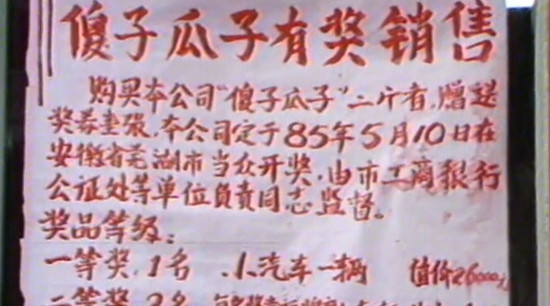 傻子瓜子有奖销售
购买本公司“傻子瓜子”二斤者，赠送
奖券壹张，本公司定于85年5月10日在
安徽省芜湖市当众开奖，由市工商银行
公证处等单位负责同志监督。
奖品等级：
一等奖，1名 小汽车一辆 值价26000元
二等奖